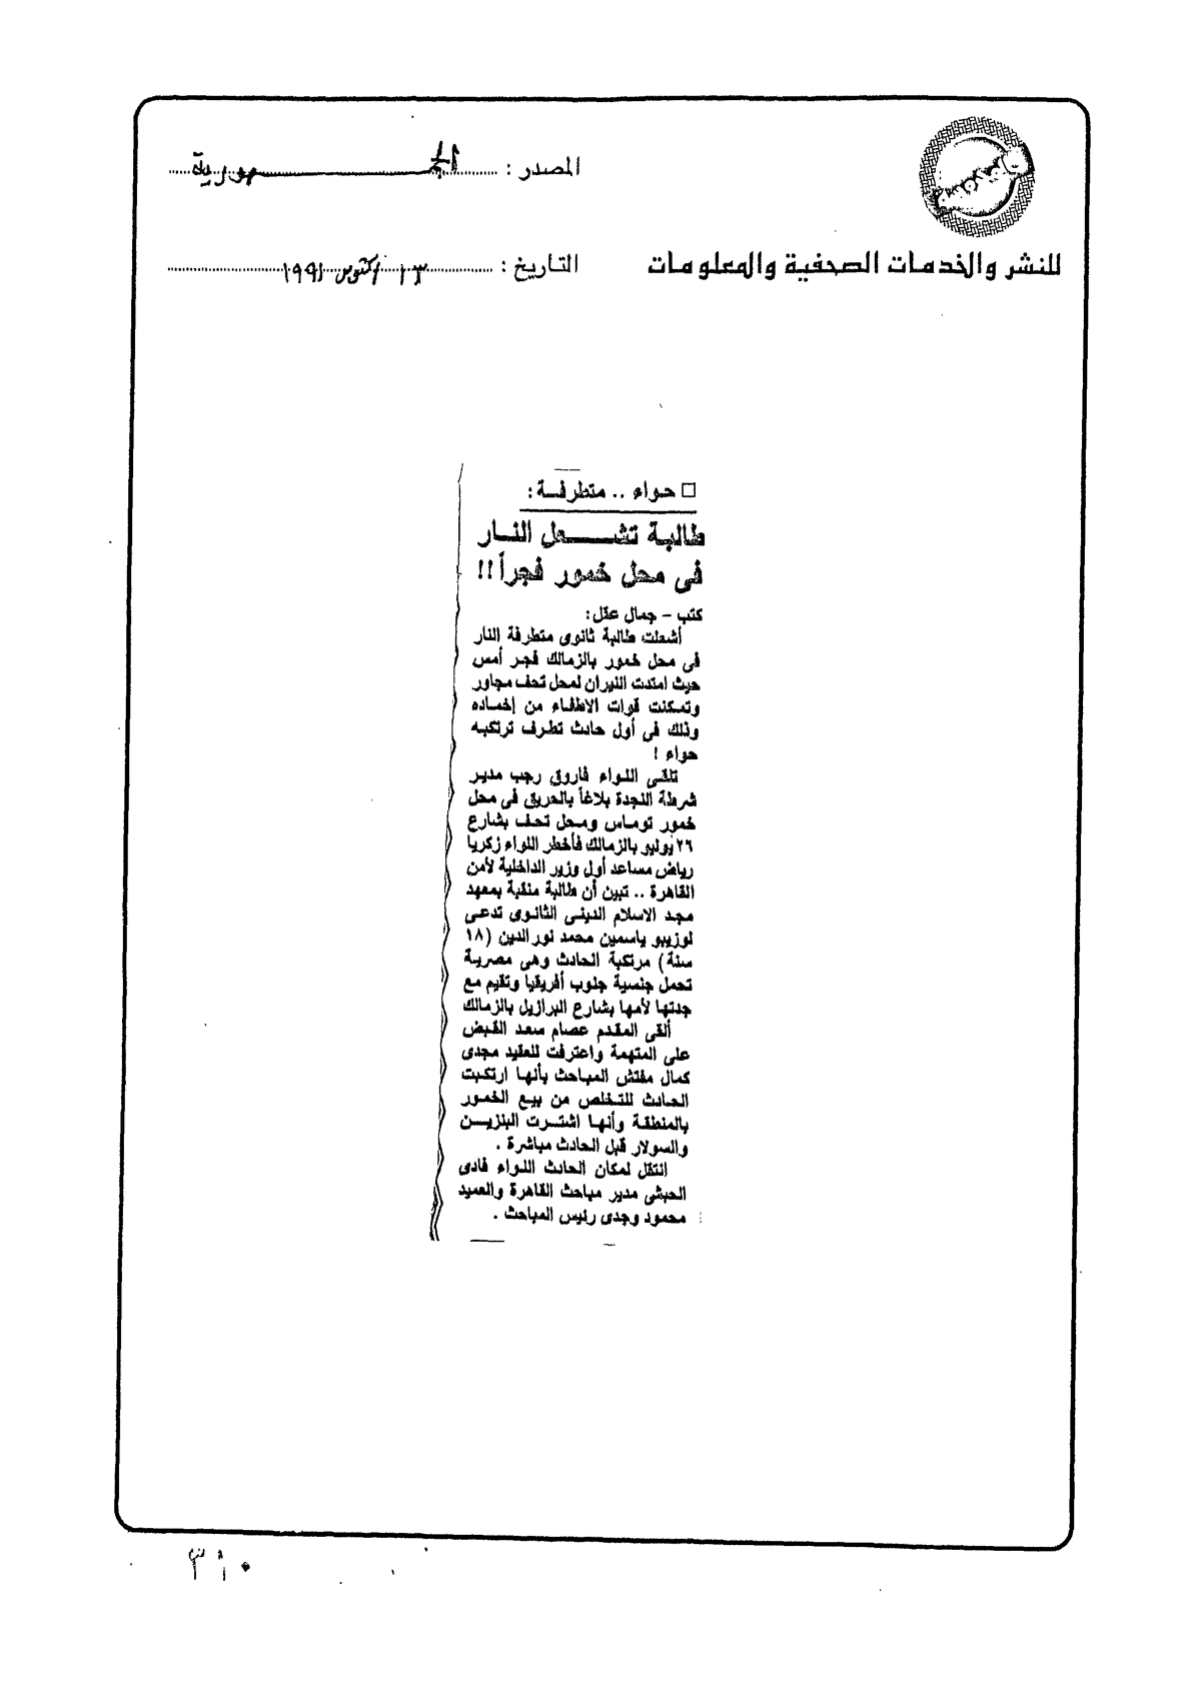 المصدر : الجمهورية
للنشر والخدمات الصحفية والمعلومات
التاريخ : ١٣ أكتوبر ١٩٩١
□ حواء .. متطرفة :
طالبة تشعل النار
فى محل خمور فجراً !!
كتب - جمال عقل :
أشعلت طالبة ثانوى متطرفة النار
فى محل خمور بالزمالك فجر أمس
حيث امتدت النيران لمحل تحف مجاور
وتمكنت قوات الاطفاء من إخماده
وذلك فى أول حادث تطرف ترتكبه
حواء !
تلقى اللواء فاروق رجب مدير
شرطة النجدة بلاغاً بالحريق فى محل
خمور توماس ومحل تحف بشارع
٢٦ يوليو بالزمالك فأخطر اللواء زكريا
رياض مساعد أول وزير الداخلية لأمن
القاهرة .. تبين أن طالبة منقبة بمعهد
مجد الاسلام الدينى الثانوى تدعى
لوزيبو ياسمين محمد نور الدين (١٨
سنة) مرتكبة الحادث وهى مصرية
تحمل جنسية جنوب أفريقيا وتقيم مع
جدتها لأمها بشارع البرازيل بالزمالك
ألقى المقدم عصام سعد القبض
على المتهمة واعترفت للعقيد مجدى
كمال مفتش المباحث بأنها ارتكبت
الحادث للتخلص من بيع الخمور
بالمنطقة وأنها اشترت البنزين
والسولار قبل الحادث مباشرة .
انتقل لمكان الحادث اللواء فادى
الحبشى مدير مباحث القاهرة والعميد
محمود وجدى رئيس المباحث .